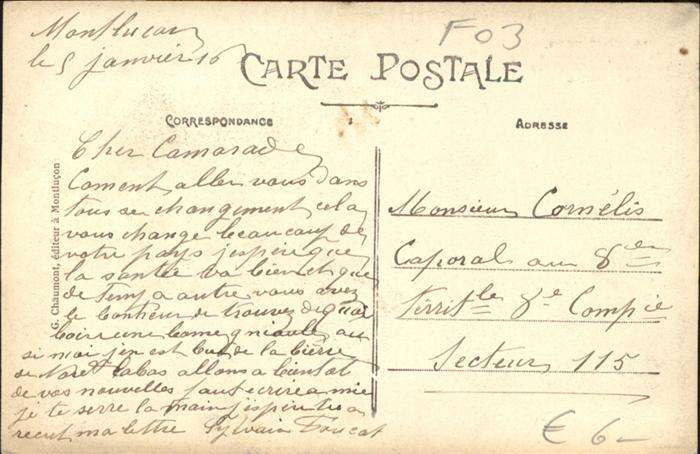 Montlucon
le 5 janvier 16
F03
CARTE POSTALE
CORRESPONDANCE
ADRESSE
G. Chaumont, éditeur à Montluçon
Cher Camarade
Coment aller vous dans
tous se changement cela
vous change beaucoup de
votre pays jespère que
la santée va bien et que
de temp a autre vous avez
le bonheur de trouvez de quoi
boire une bone gniaule au
si moi jen est but de la bierre
de labas allons a bientot
de vos nouvelles faut ecrire a mie
je te serre la main jesper tu a
recut ma lettre Sylvain
Monsieur Cornélis
Caporal au 8 eme
Territ le 8e Comp ie
Secteur 115
€ 6-